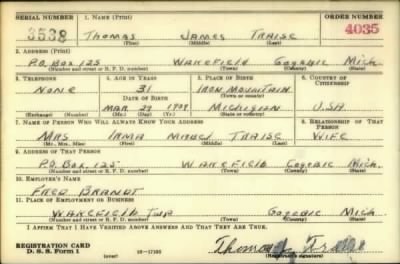 SERIAL NUMBER 1. NAME (Print) ORDER NUMBER
3538 THOMAS JAMES TRAISE 4035
(First) (Middle) (Last)
2. ADDRESS (Print)
P.O. BOX 125 WAKEFIELD GOGEBIC MICH.
(Number and street or R. F. D. number) (Town) (County) (State)
3. TELEPHONE 4. AGE IN YEARS 5. PLACE OF BIRTH 6. COUNTRY OF CITIZENSHIP
NONE 31 IRON MOUNTAIN
DATE OF BIRTH (Town or county)
MAR 27 1909 MICHIGAN U.S.A.
(Exchange) (Number) (Mo.) (Day) (Yr.) (State or country)
7. NAME OF PERSON WHO WILL ALWAYS KNOW YOUR ADDRESS 8. RELATIONSHIP OF THAT PERSON
MRS IRMA TRAISE WIFE
(Mr., Mrs., Miss) (First) (Middle) (Last)
9. ADDRESS OF THAT PERSON
P.O. BOX 125 WAKEFIELD GOGEBIC MICH.
(Number and street or R. F. D. number) (Town) (County) (State)
10. EMPLOYER'S NAME
FRED BRANDT
11. PLACE OF EMPLOYMENT OR BUSINESS
WAKEFIELD TWP GOGEBIC MICH
(Number and street or R. F. D. number) (Town) (County) (State)
I AFFIRM THAT I HAVE VERIFIED ABOVE ANSWERS AND THAT THEY ARE TRUE.
REGISTRATION CARD
D. S. S. Form 1 (over) 16—17105 Thomas J. Traise
(Registrant's signature)